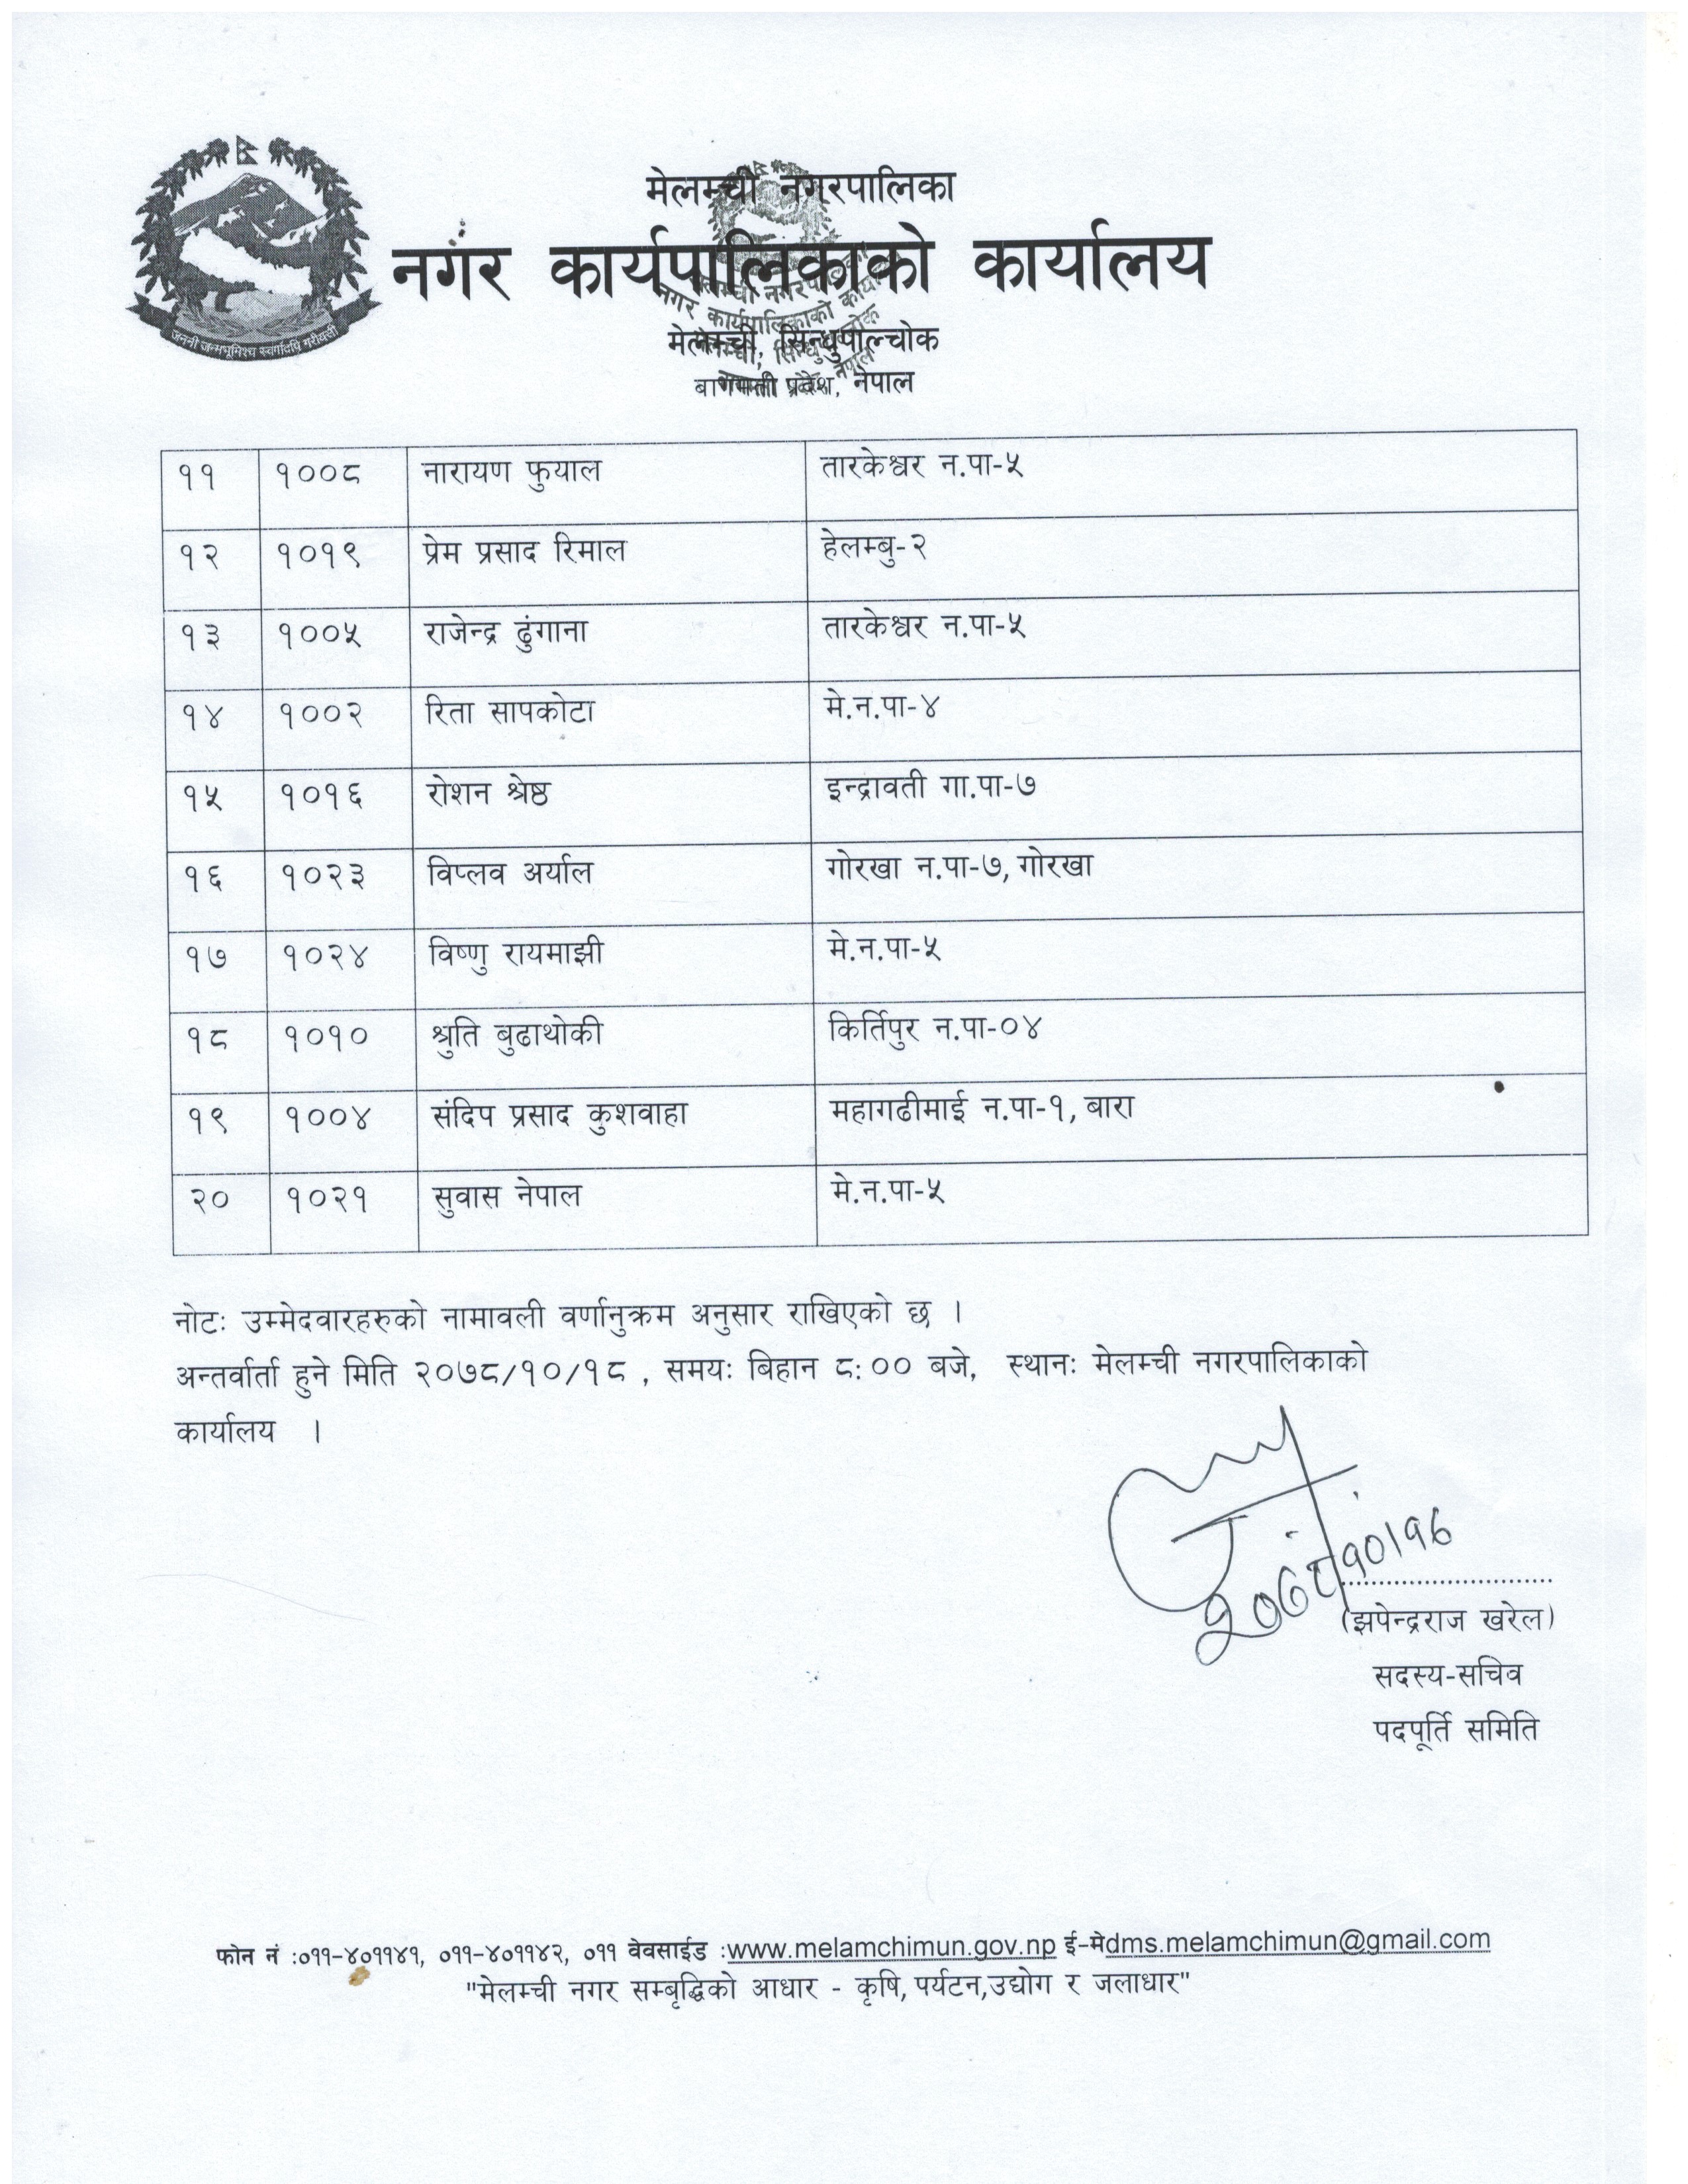 जननी जन्मभूमिश्च स्वर्गादपि गरीयसी
मेलम्ची नगरपालिका
नगर कार्यपालिकाको कार्यालय
मेलम्ची, सिन्धुपाल्चोक
बागमती प्रदेश, नेपाल
११ १००८ नारायण फुयाल तारकेश्वर न.पा-५
१२ १०१९ प्रेम प्रसाद रिमाल हेलम्बु-२
१३ १००५ राजेन्द्र ढुंगाना तारकेश्वर न.पा-५
१४ १००२ रिता सापकोटा मे.न.पा-४
१५ १०१६ रोशन श्रेष्ठ इन्द्रावती गा.पा-७
१६ १०२३ विप्लव अर्याल गोरखा न.पा-७, गोरखा
१७ १०२४ विष्णु रायमाझी मे.न.पा-५
१८ १०१० श्रुति बुढाथोकी किर्तिपुर न.पा-०४
१९ १००४ संदिप प्रसाद कुशवाहा महागढीमाई न.पा-१, बारा
२० १०२१ सुवास नेपाल मे.न.पा-५
नोटः उम्मेदवारहरुको नामावली वर्णानुक्रम अनुसार राखिएको छ ।
अन्तर्वार्ता हुने मिति २०७८/१०/१८ , समयः बिहान ८: ०० बजे, स्थानः मेलम्ची नगरपालिकाको
कार्यालय ।
(झपेन्द्रराज खरेल)
सदस्य-सचिव
पदपूर्ति समिति
फोन नं :०११-४०११४१, ०११-४०११४२, ०११ वेवसाईड :www.melamchimun.gov.np ई-मेdms.melamchimun@gmail.com
"मेलम्ची नगर सम्बृद्धिको आधार - कृषि, पर्यटन,उद्योग र जलाधार"